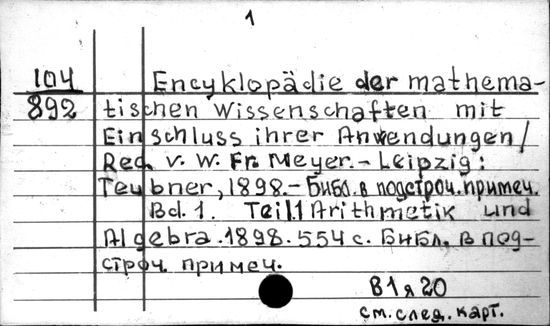 1
104 Encyklopädie der mathema-
892 tischen Wissenschaften mit
Einschluss ihrer Anwendungen/
Red. v. W. Fr. Meyer.- Leipzig:
Teubner, 1898.- Библ. в подстроч. примеч.
Bd. 1. Teil 1 Arithmetik und
Algebra. 1898. 554 с. Библ. в под-
строч. примеч.
В1я20
см. след. карт.